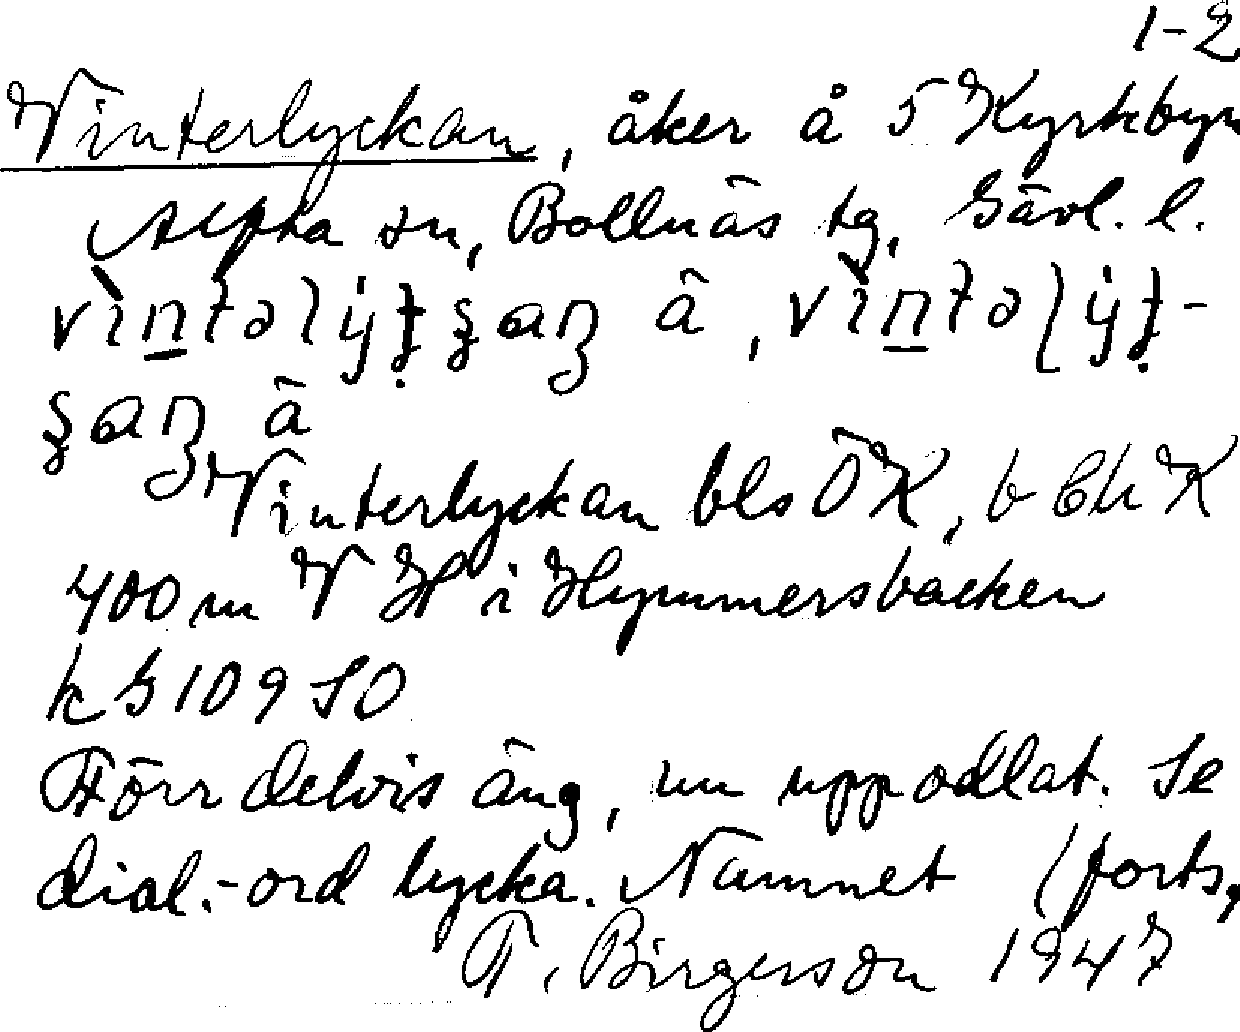 1-2
Vinterlyckan, åker å 5 Kyrkbyn
Alfta sn, Bollnäs tg, Gävl. l.
â
â
Vinterlyckan bls ÖK, b Ch K
400 m V H i Hymmersbacken
k G 109 SO
Förr delvis äng, nu uppodlat. Se
dial.-ord lycka. Namnet (forts,
T. Birgerson 1947